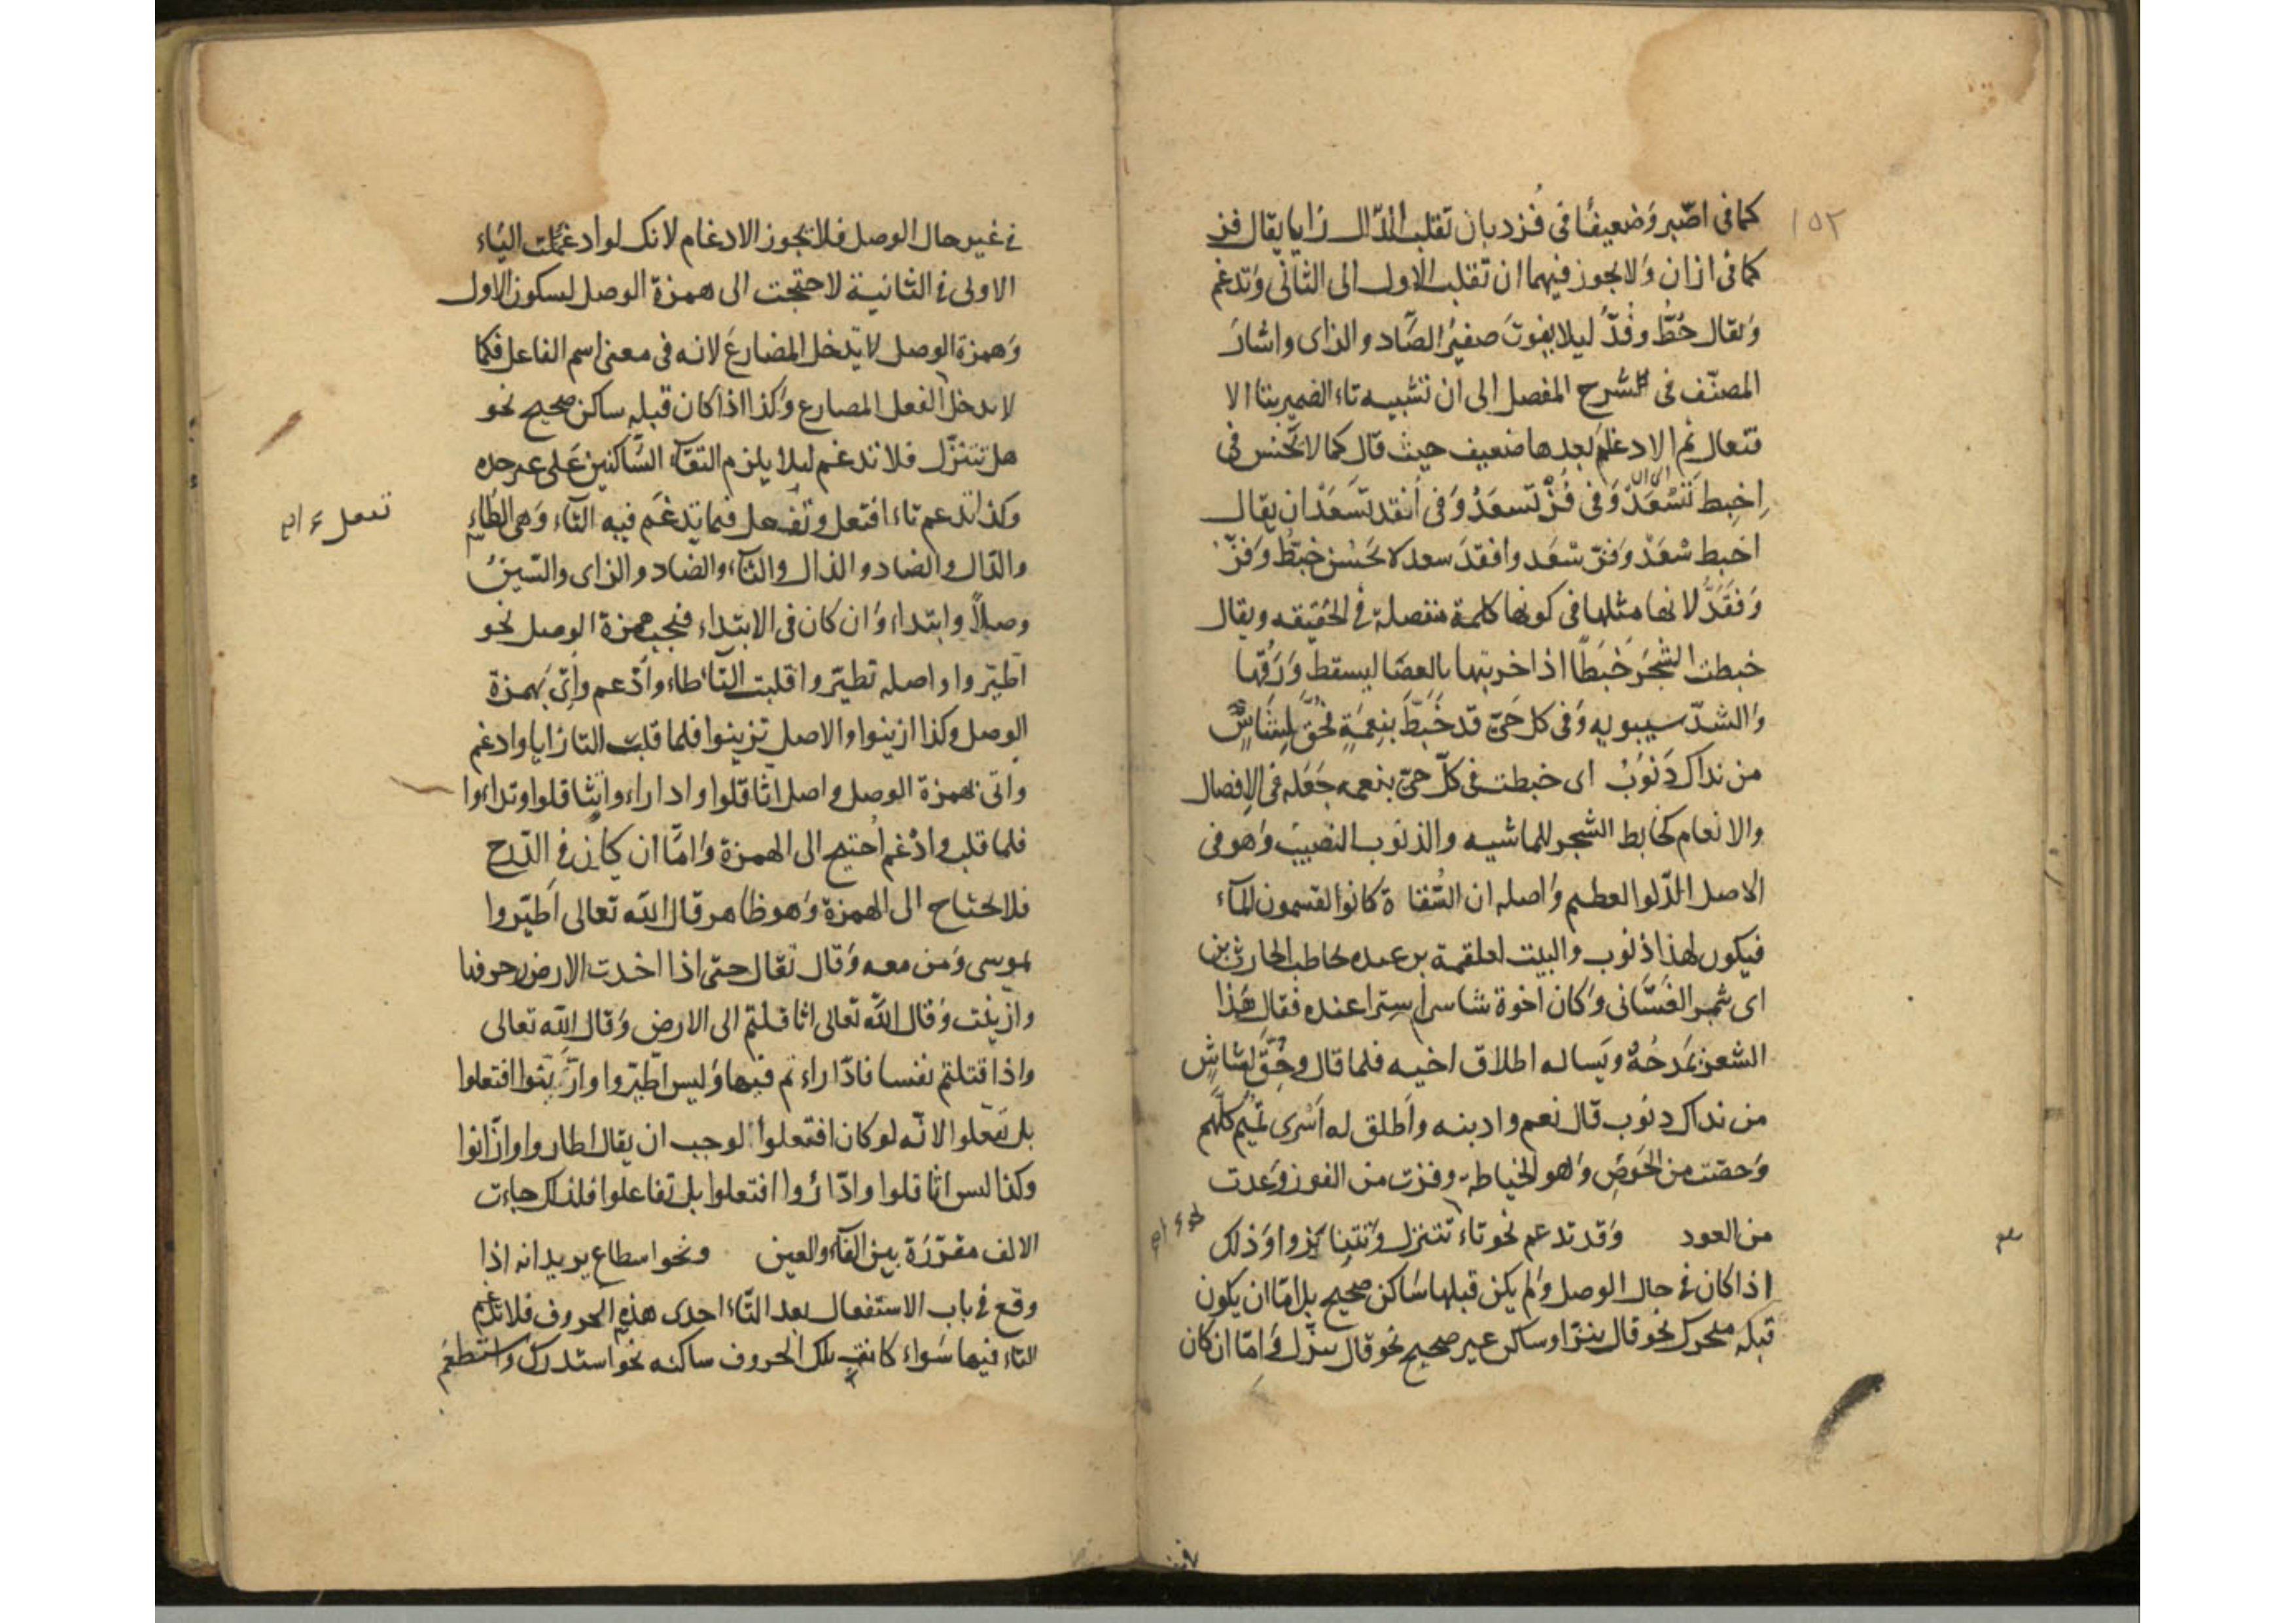 ١٥٢
كما فى اصّبر وضعيفًا فى فُزد بان تقلب الدّال زايا يقال فزّ
كما فى ازان ولا يجوز فيهما ان تقلب الاول الى الثانى وتدغم
ويقال خُطّ وفُدّ ليلا يفوت صفيرُ الصَّاد والزاى واشار
المصنّف فى شرح المفصل الى ان تشبيه تاء الضمير بتاء الا
فتعال ثم الادغام بعدها ضعيف حيث قال كما لا يحسن فى
اِخبِط تَسْعَدْ وَفى فُزْ تَسعَدُ وَفى أنقد تَسعَدْ ان يقال
اخبط سْعَدْ وَفز سْعَد وافقدَ سعد لا يحَسُن خبَطُّ وَفزّ
وَفقَدُّ لانها مثلها فى كونها كلمة منفصلة فى الحقيقه ويقال
خبطت الشجَرَ خَبَطًا اذا ضربتها بالعصَا ليسقط وَرَقها
وَالشدّ سيبويه وَفى كل حَىّ قد خَبَطَّ بنِعمَةٍ فحُقَّ لِشَاسٍ
من نداك ذَنوُبُ اى خبطت فى كلّ حىّ بنعمه جَعَله فى الافضال
والانعام كخابط الشجر للماشيه والذنَوب النصيب وَهو فى
الاصل الدّلو العظيم وَاصله ان السُّقاة كانوا يقتسمون المآء
فيكون لهذا ذنوب والبيت لعلقمة بن عبده يخاطب الحارث بن
اى شمر الغَسَّانى وَكان اخوة شاس اسِترا عنده فقال هَذا
الشعر يمَدحُهُ ويَساله اطلاق اخيه فلما قال وحُقَّ لِشاسٍ
من نداك دنوب قال نعم واذبنه واَطلق له اَسْرى تميم كلّهم
وَحصَت من الحَوَصِ وَهو الخياطه وفزت من الفوز وَعدت
من العود وَقد تدغم نحو تاء تتنزل وَتتنابزوا وَذلك
اذا كان فى حال الوصل وَلم يكن قبلها سَاكن صحيح بل امّا ان يكون
قبله متحرك نحو قال تنزل او ساكن غير صحيح نحو قال تنزّل وَامّا ان كان
فى غير حال الوصل فلا يجوز الادغام لانك لو ادغمت التاء
الاولى فى الثانية لاحتجت الى همزة الوصل لسكون الاول
وَهمزة الوصل لا يدخل المضارعَ لانه فى معنى اسم الفاعل فكما
لا يدخل الفعل المضارع وَكذا اذا كان قبله ساكن صحيح نحو
هل تتنزّل فلا تدغم ليلا يلزم التقآء السَّاكنين عَلى غير حده
وكذا تدغم تاء افتعل وتفعل فيما تدغَم فيه التآء وَهى الطاء
تفعل
والدّال والصاد والذال والثآء والضاد والزاى والسّين
وصلاً وابتداء وَان كان فى الابتداء فيجب همزة الوصل نحو
اَطيّروا واصله تطيّروا قلبت التاَ طاء وادّغم واُتى بهمزة
الوصل وكذا ازينوا والاصل تزينوا فلما قلبت التا زايا وادغم
واتى بهمزة الوصل واصل اثاقلوا واداراء وا تثاقلوا وتداءوا
فلما قلب وادْغم اُحتيج الى الهمزة وَامّا ان كان فى الدّرج
فلا يحتاج الى الهمزة وَهو ظاهر قال الله تعالى اَطيّروا
بموسى وَمن معه وَقال تعَال حتى اذا اخدت الارض زخرفها
وازينت وَقال اللّه تعالى اثاقلتم الى الارض وَقال الله تعالى
واذا قتلتم نفسا فادّاراء تم فيها وَليس اطّيروا وازّينوا افتعلوا
بل تفعلوا لانّه لو كان افتعلوا لوجب ان يقال اطاروا وازّانوا
وكذا ليس اثاقلوا وادّارُوا افتعلوا بل تفاعلوا فلذلك جاءت
الالف مقرّرَة بين الفآء والعين ونحو اسطاع يريد انه اذا
وقع فى باب الاستفعال بعد التّاء احدى هذه الحروف فلا تدغم
التاء فيها سَواء كانت تلك الحروف ساكنه نحو استدرك واستطعم